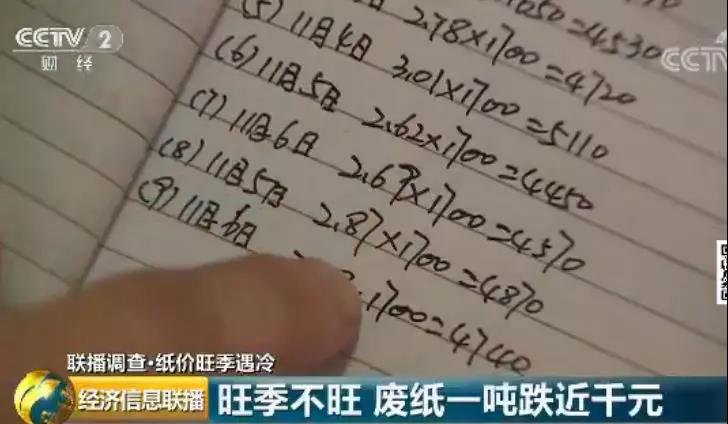 CCTV 2
财经
CCTV
1050=4530
2.78×1700=4720
(5) 11月4日 3.01×1700=5110
(6) 11月5日 2.62×1700=4450
(7) 11月6日 2.69×1700=4570
(8) 11月5日 2.87×1700=4870
(9) 11月6日 1700=4740
联播调查·纸价旺季遇冷
经济信息联播
旺季不旺 废纸一吨跌近千元